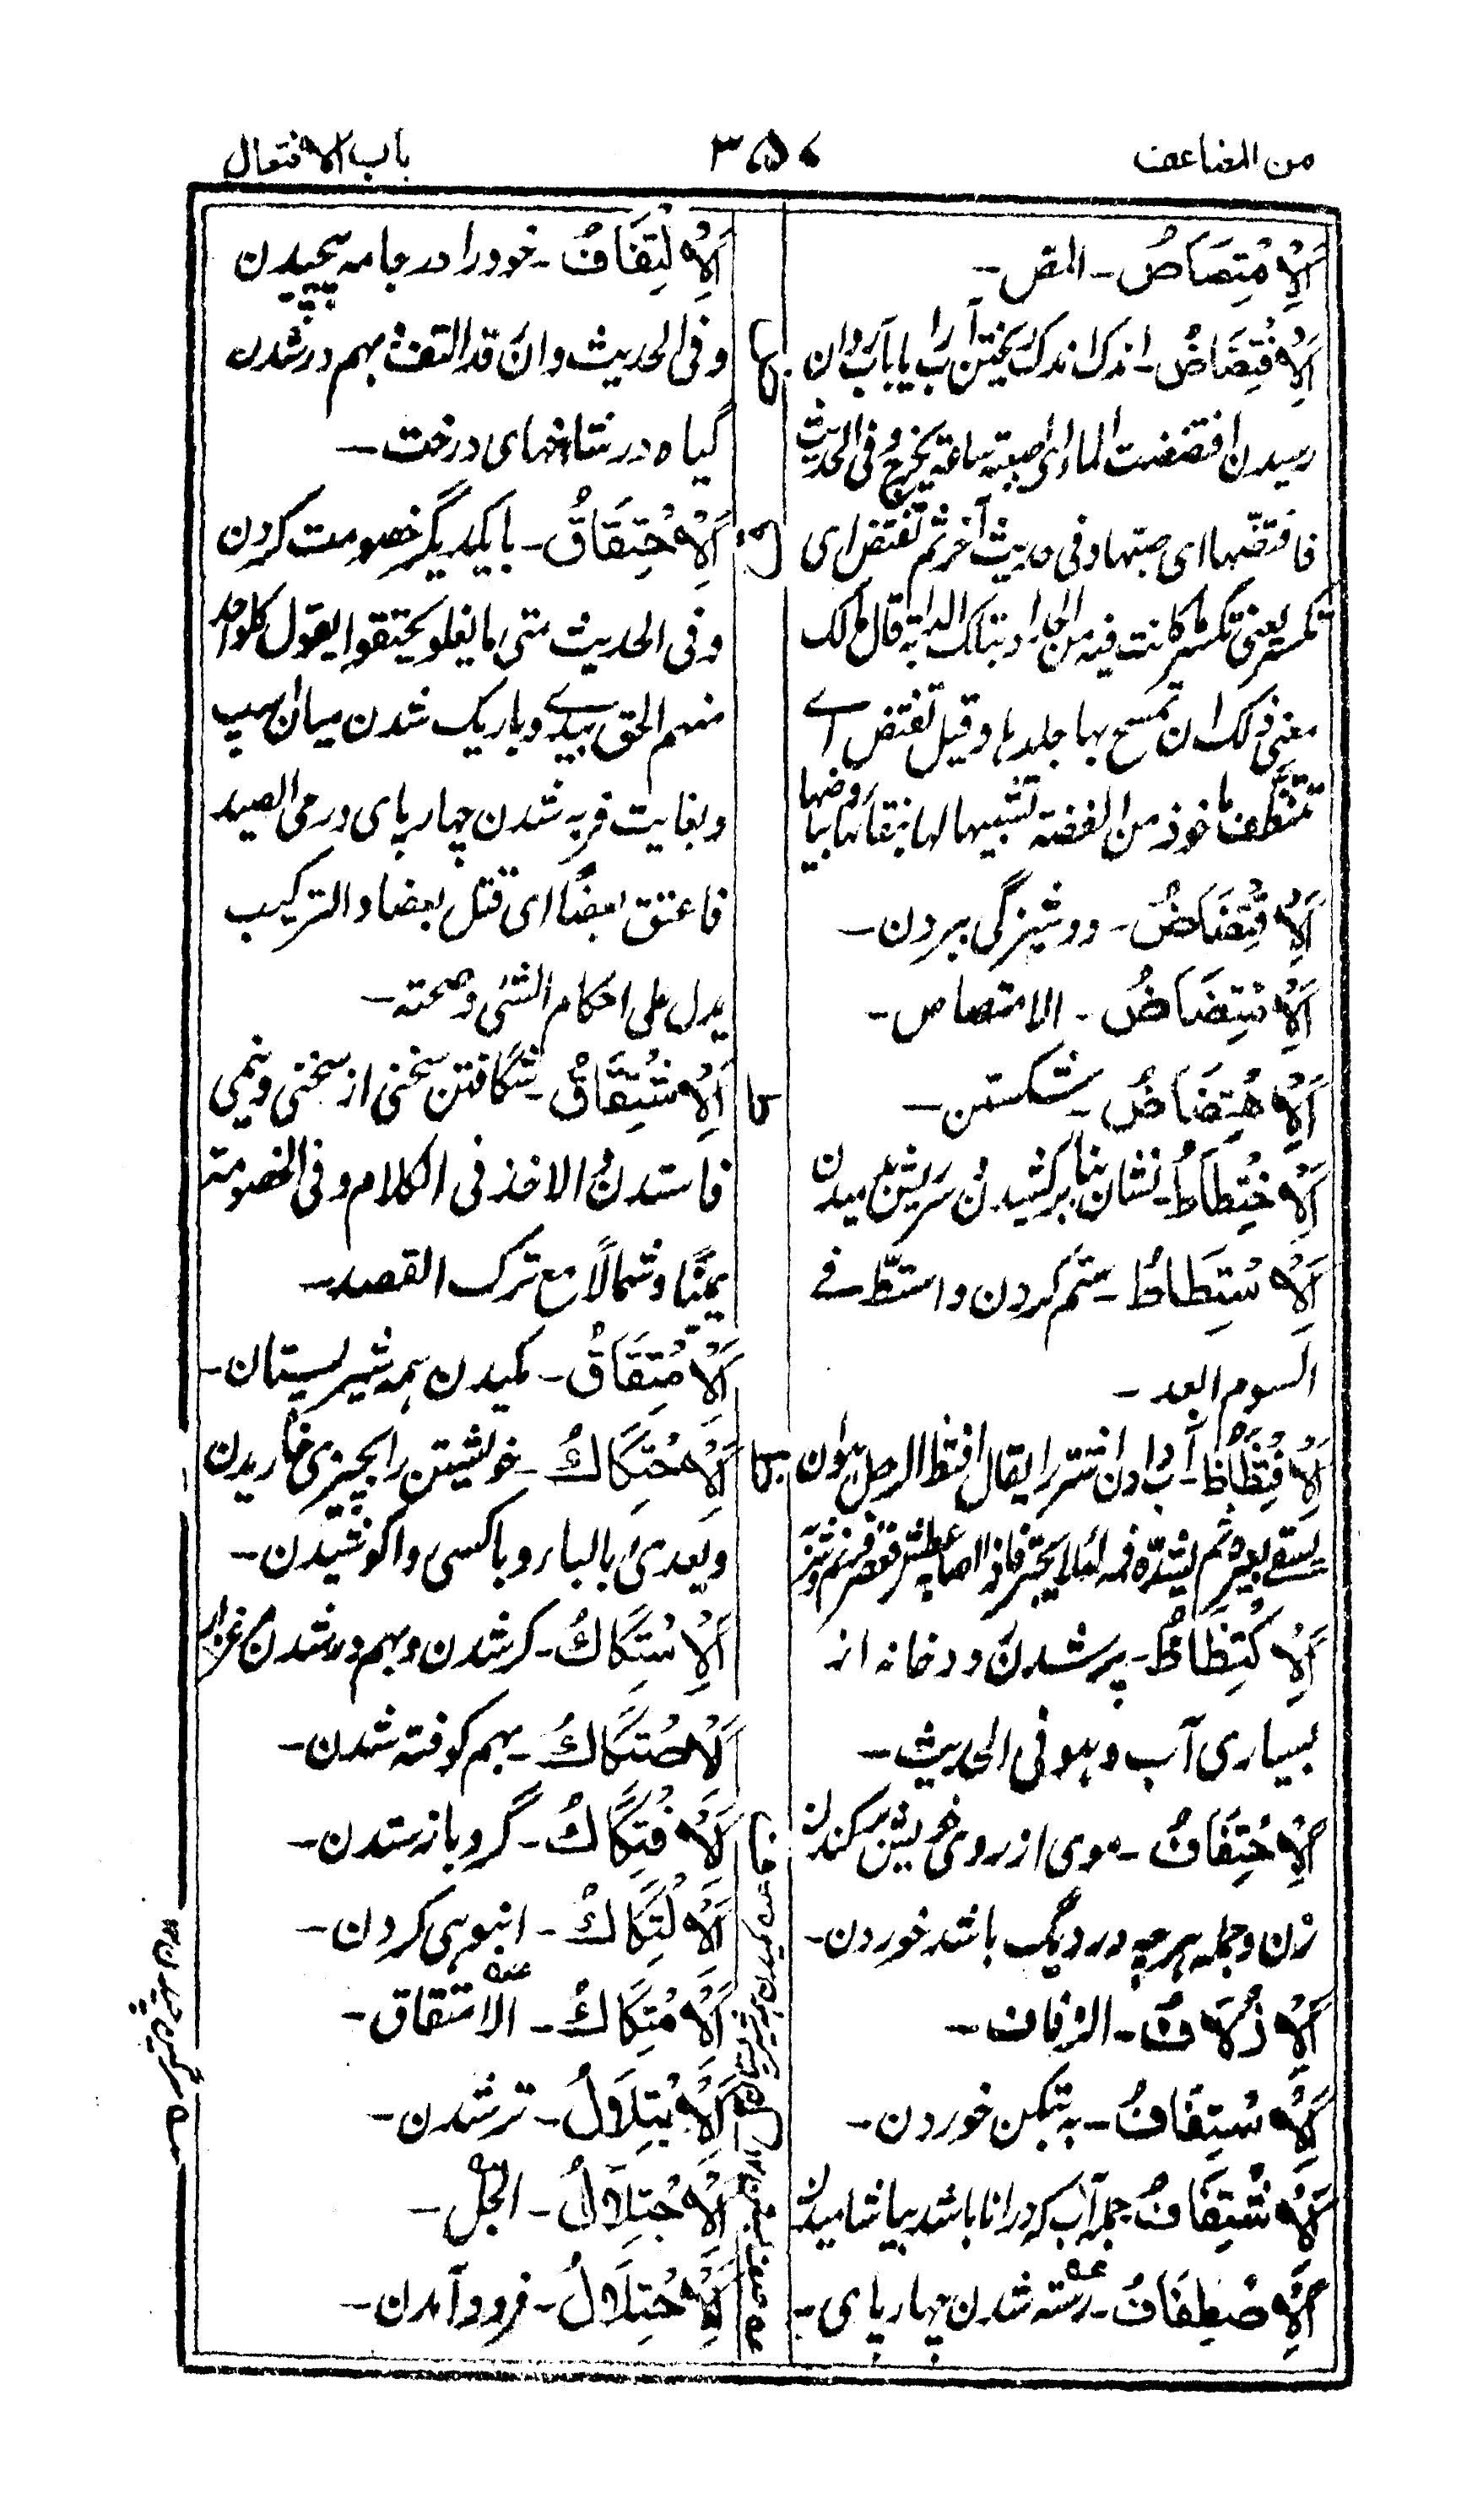 من المضاعف
۳۵۷
باب الافتعال
اَلْاِمْتِصَاصُ ـ المص ـ
اَلْاِفْتِضَاضُ ـ اندک اندک ریختن آب را یا بآب روان
رسیدن افتضضت الماء ای اصبته ساعة یخرج وفی الحدیث
فافتضها ای صبتها وفی حدیث آخر ثم تفتض ای
تکسر یعنی تکسر ما کانت فیه من الحداد بتلک الدابة قال مالک
معنی ذلک ان تمسح بها جلدها وقیل تفتض اے
تتنظف ماخوذ من الفضة تشبیها لها بنقائها وبیاضها
اَلْاِقْتِضَاضُ ـ دوشیزگی ببردن ـ
اَلْاِنْتِضَاضُ ـ الامتصاص ـ
اَلْاِهْتِضَاضُ ـ شکستن ـ
اَلْاِخْتِطَاطُ ـ نشان بنا برکشیدن و سر ریش دمیدن
اَلْاِسْتِطَاطُ ـ ستم کردن واستطّ فے
السوم ابعد ـ
اَلْاِفْتِظَاظُ ـ آب دادن اشتر را یقال افتظ الرجل وهو ان
یسقے بعیره ثم یشد فمه لئلا یجتر فاذا اصابه عطش
اَلْاِکْتِظَاظُ ـ پر شدن رودخانه از
بسیاری آب وهو فی الحدیث ـ
اَلْاِحْتِفَافُ ـ موی از روی خویش برکندن
زن وجمله هرچه در دیگ باشد خوردن ـ
الزفاف ـ
اَلْاِسْتِفَافُ ـ خوردن ـ
اَلْاِشْتِفَافُ جمله آب که در انا باشد بیاشامیدن
اَلْاِصْطِفَافُ ـ رسته شدن چهارپای ـ
اَلْاِلْتِفَافُ ـ خود را در جامه پیچیدن
وفی الحدیث وان قد التف بهم در شدن
گیاه و شاخهای درخت ـ
اَلْاِحْتِقَاقُ ـ بایکدیگر خصومت کردن
وفی الحدیث متی ما یغلو یحتقوا یقول کل واحد
منهم الحق بیدے وباریک شدن میان اسپ
وبغایت فربه شدن چهارپای ورمی الصید
فاحتق بعضًا ای قتل بعضا والترکیب
یدل علی احکام الشئ وصحته ـ
اَلْاِشْتِقَاقُ ـ شگافتن سخنی از سخنی ونیمی
فاستدن والاخذ فی الکلام وفی الخصومة
یمینًا وشمالًا مع ترک القصد ـ
اَلْاِمْتِقَاقُ ـ مکیدن همه شیر پستان ـ
اَلْاِحْتِکَاكُ ـ خویشتن را بچیزی خاریدن
ویعدی بالباء وباکسی واکوشیدن ـ
اَلْاِسْتِکَاكُ ـ کر شدن وبهم در شدن مرغزار
اَلْاِصْتِکَاكُ ـ بهم کوفته شدن ـ
اَلْاِفْتِکَاكُ ـ گرو بازستدن ـ
اَلْاِلْتِکَاكُ ـ انبوهی کردن ـ
اَلْاِمْتِکَاكُ ـ الامتقاق ـ
اَلْاِبْتِلَالُ ـ تر شدن ـ
اَلْاِجْتِلَالُ ـ الجل ـ
اَلْاِحْتِلَالُ ـ فرود آمدن ـ